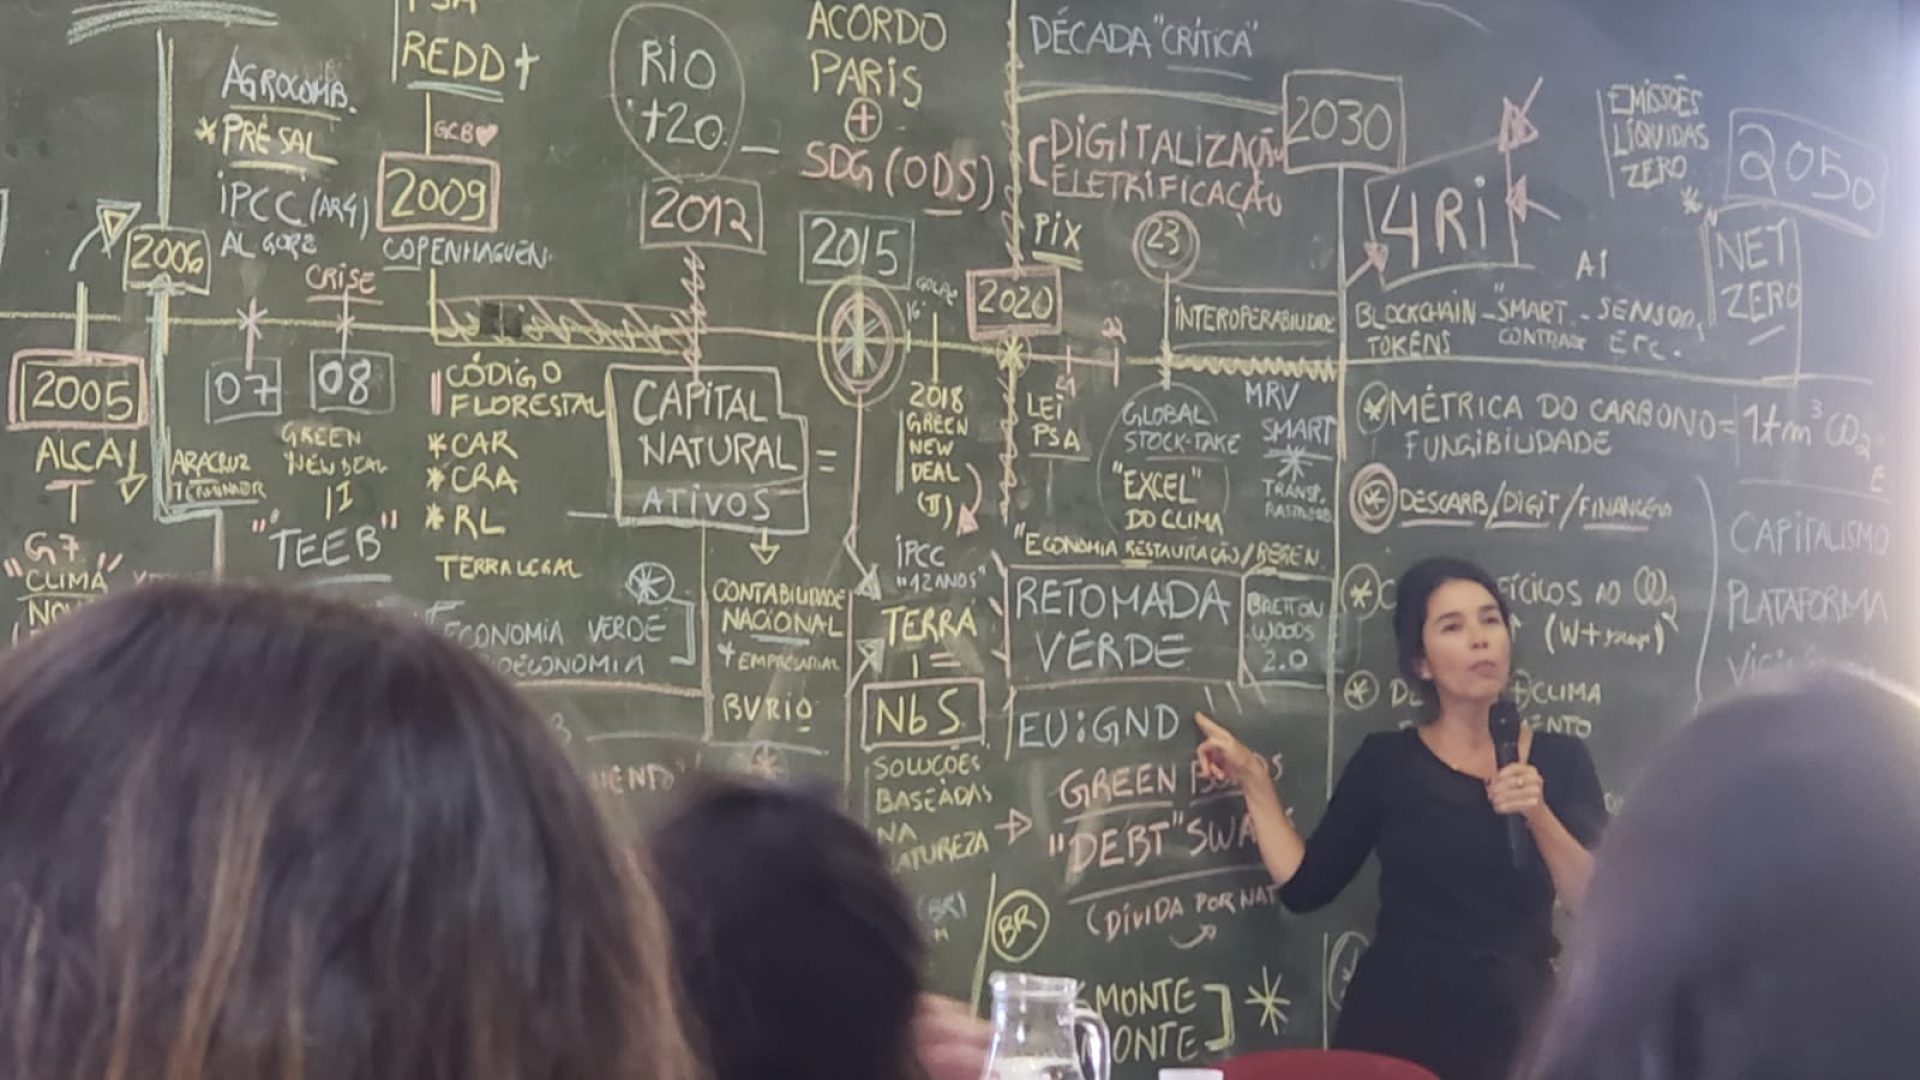 REDD+
AGROCOMB.
* PRÉ SAL
IPCC (AR4)
AL GORE
2006
CRISE
07
08
2005
ALCA
"G7
CLIMA
ARACRUZ
GREEN
NEW DEAL
"TEEB"
GCB
2009
COPENHAGUEN
CÓDIGO
FLORESTAL
* CAR
* CRA
* RL
TERRA LEGAL
ECONOMIA VERDE
RIO
+20
2012
CAPITAL
NATURAL =
ATIVOS
CONTABILIDADE
NACIONAL
+ EMPRESARIAL
BVRIO
ACORDO
PARIS
+
SDG (ODS)
2015
16
2018
GREEN
NEW
DEAL
(II)
IPCC
"12 ANOS"
TERRA
=
NbS
SOLUÇÕES
BASEADAS
NA
DÉCADA "CRÍTICA"
DIGITALIZAÇÃO
ELETRIFICAÇÃO
PIX
23
2020
22
LEI
PSA
INTEROPERABILIDADE
GLOBAL
STOCK-TAKE
"EXCEL"
DO CLIMA
MRV
SMART
"ECONOMIA RESTAURAÇÃO/REGEN.
RETOMADA
VERDE
BRETTON
WOODS
2.0
EU:GND
GREEN
"DEBT"
(DÍVIDA POR NAT
BR
MONTE
2030
4RI
AI
BLOCKCHAIN - "SMART - SENSOR,
TOKENS
ETC.
EMISSÕES
LÍQUIDAS
ZERO
*
2050
NET
ZERO
* MÉTRICA DO CARBONO =
FUNGIBILIDADE
* DESCARB/DIGIT/FINANCEIO
CLIMA
CAPITALISMO
PLATAFORMA